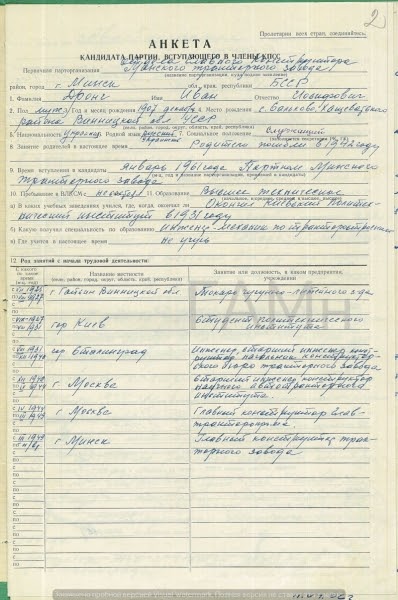 2
Пролетарии всех стран, соединяйтесь!
АНКЕТА
КАНДИДАТА ПАРТИИ, ВСТУПАЮЩЕГО В ЧЛЕНЫ КПСС
отдела главного конструктора
Первичная парторганизация Минского тракторного завода
район, город г. Минск обл., край, республика БССР
1. Фамилия Дронг Имя Иван Отчество Иосифович
2. Пол мужск. Год и месяц рождения 1907 декабрь 4. Место рождения с.
района Винницкой обл УССР
(село, район, город, округ, область, край, республика)
5. Национальность украинец Родной язык украинск. 7. Социальное положение служащий
8. Занятие родителей в настоящее время Родители померли в 1942 году
9. Время вступления в кандидаты январь 1961 года Партком Минского
тракторного завода
10. Пребывание в ВЛКСМ с не состоял 11. Образование Высшее техническое
а) В каких учебных заведениях учился, где, когда окончил ли Окончил Киевский политех-
нический институт в 1931 году
б) Какую получил специальность по образованию инженер механик по тракторостроению
в) Где учится в настоящее время не учусь
12. Род занятий с начала трудовой деятельности:
Название местности
(село, район, город, округ, область, край, республика)
Занятие или должность, в каком предприятии,
учреждении
г. Гайсин Винницкой обл Токарь чугунно-литейного з-да
гор Киев студент политехнического
института
гор Сталинград Инженер, старший инженер конст-
руктор, начальник конструктор-
ского бюро тракторного завода
г. Москва старший инженер конструктор
научного автотракторного
института.
г. Москва Главный конструктор глав-
тракторопрома.
г. Минск Главный конструктор трак-
торного завода